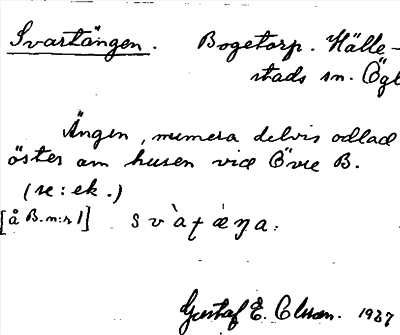 Svartängen. Bogetorp. Hälle-
stads sn. Ögl
Ängen, numera delvis odlad
öster om husen vid Övre B.
(se: ek.)
[å B. n:r 1] svàṭæŋa.
Gustaf E. Olsson. 1927